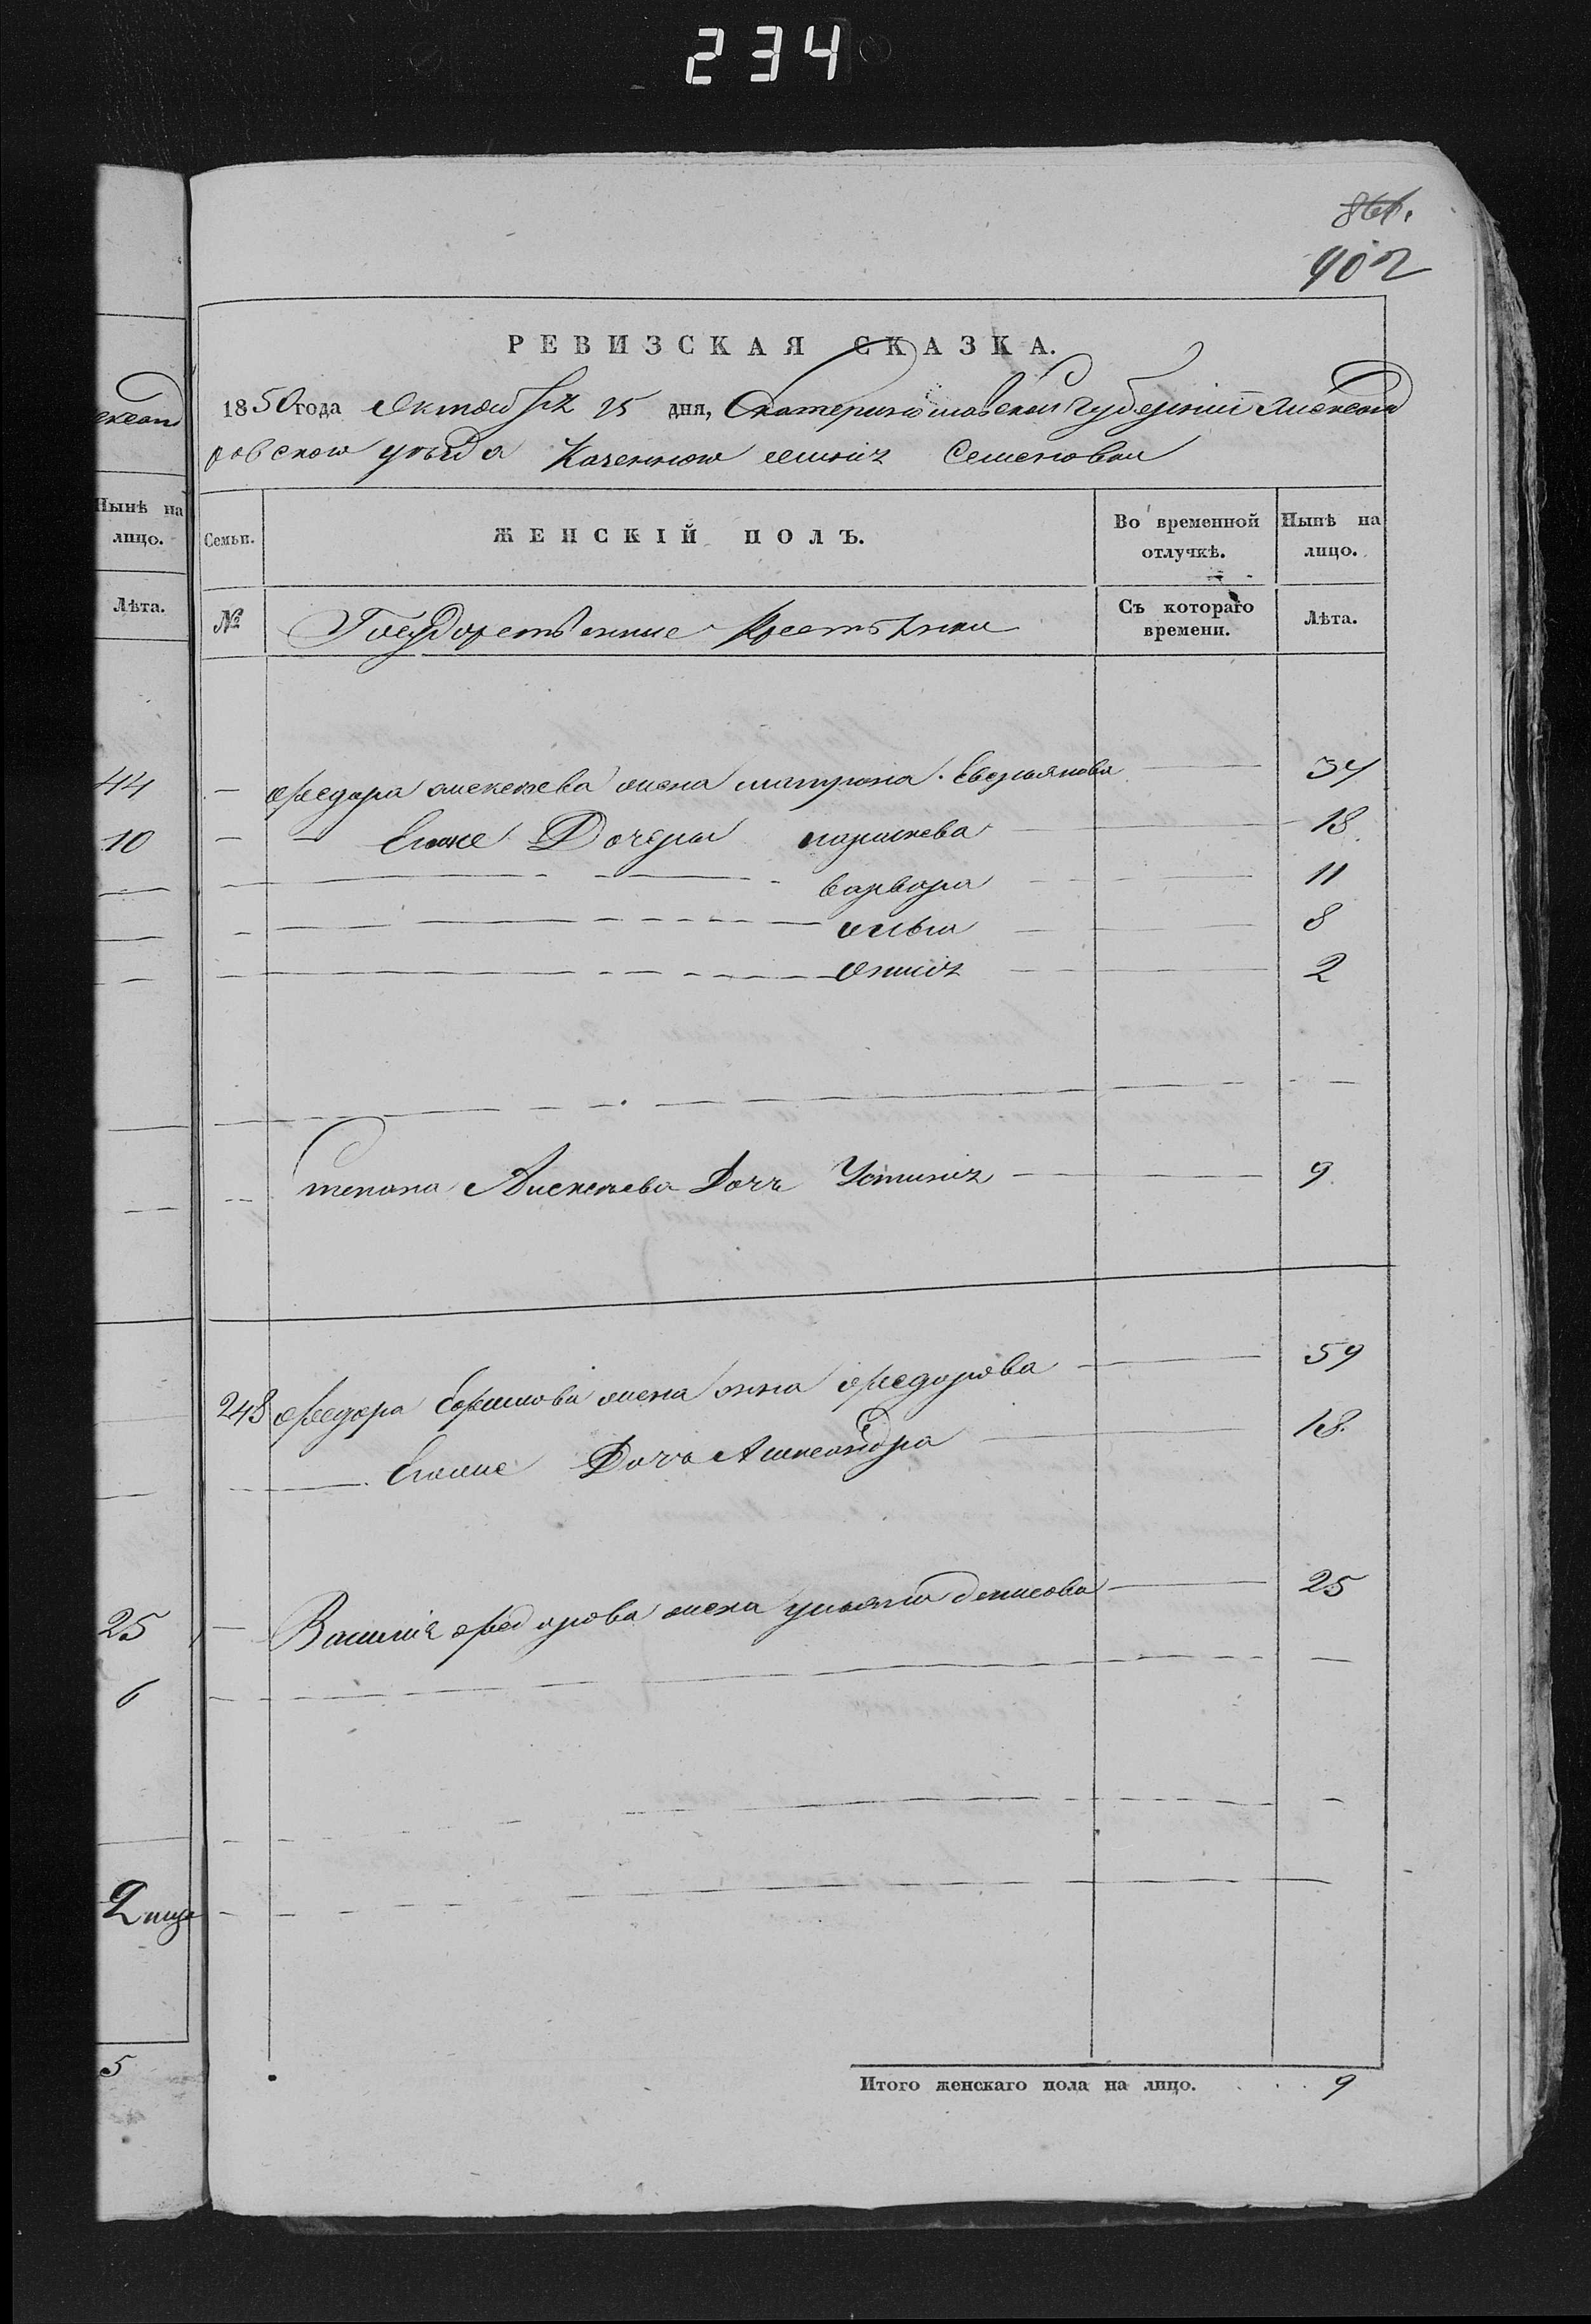 234
861.
902
РЕВИЗСКАЯ СКАЗКА.
1850 года Октября 25 дня, Екатеринославской Губерніи Александ
ровскаго уѣзда Казеннаго Семеновки
Нынѣ на лицо.
Лѣта.
44
10
25
6
5
Семьи.
ЖЕНСКІЙ ПОЛЪ.
Во временной отлучкѣ.
Ныпѣ на лицо.
№
Государственные Крестьянки
Съ котораго времени.
Лѣта.
— Федора Алексѣева жена матрона Евдокимова — 34
— — Егоже Дочери парасκева — 18
варвара — 11
ольга — 8
Анисія — 2
степана Алексѣева Дочь Устинія — 9
248 Федора Ефимова жена Анна Федорова — 59
Егоже Дочь Александра — 18.
— Василія Федорова жена ульяна денисова — 25
Итого женскаго пола на лицо. . . . 9